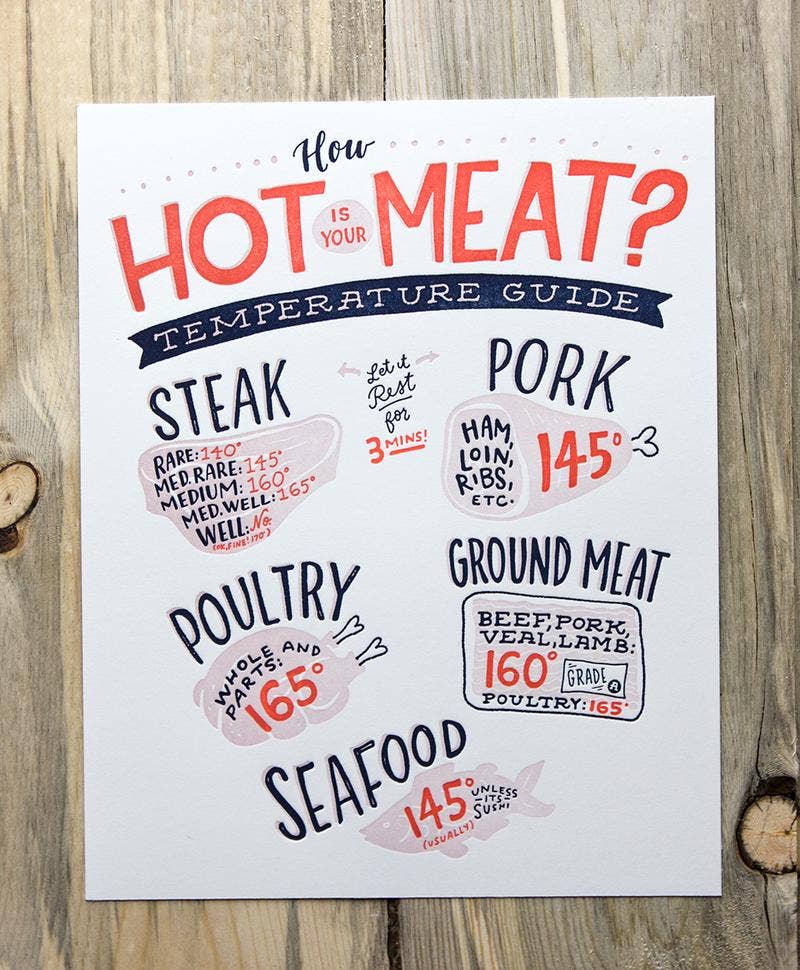 How
HOT IS YOUR MEAT?
TEMPERATURE GUIDE
STEAK
RARE: 140°
MED. RARE: 145°
MEDIUM: 160°
MED. WELL: 165°
WELL: No.
(OK, FINE! 170°)
Let it
Rest
for
3 MINS!
PORK
HAM,
LOIN,
RIBS,
ETC.
145°
POULTRY
WHOLE AND
PARTS:
165°
GROUND MEAT
BEEF, PORK,
VEAL, LAMB:
160°
GRADE A
POULTRY: 165°
SEAFOOD
145°
(USUALLY)
UNLESS
-ITS-
SUSHI